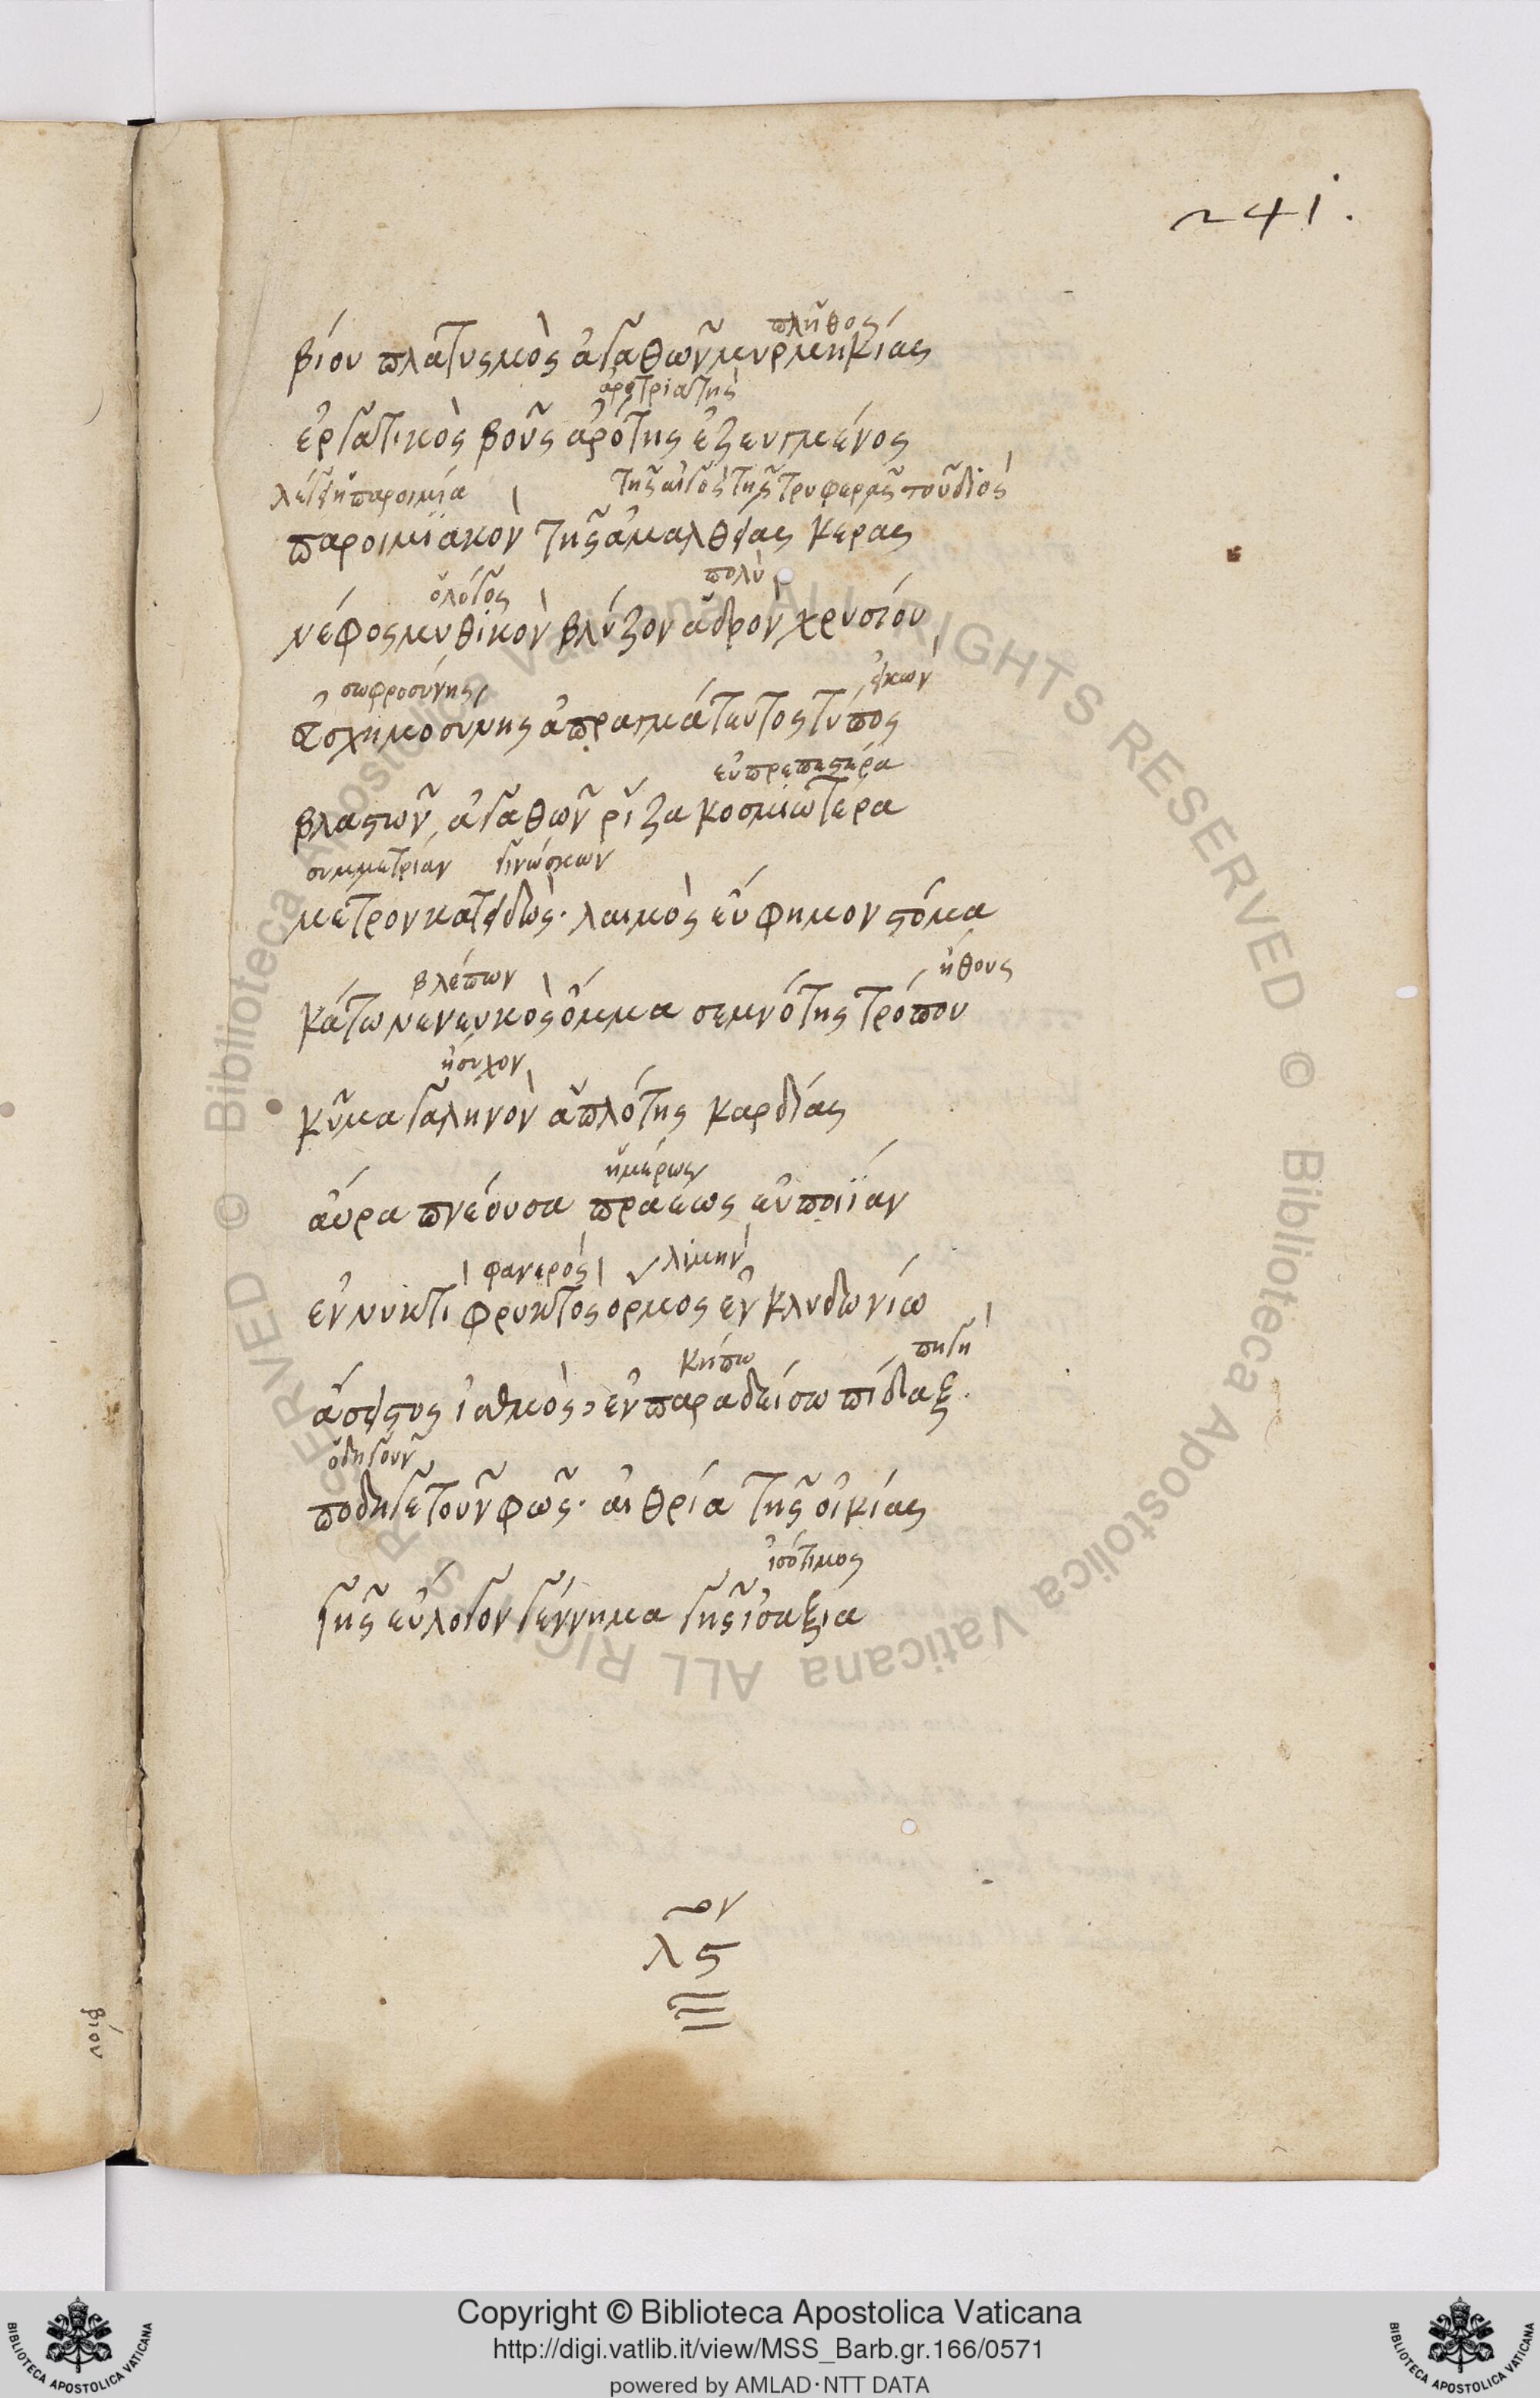 241.
πλῆθος
βίου πλατυσμὸς ἀγαθῶν μυρμηκίας
ἀροτριαστὴς
ἐργατικὸς βοῦς ἀρότης ἐζευγμένος
λέγει ἡ παροιμία τῆς αἰγὸς τῆς τρυφερᾶς τοῦ διὸς
παροιμϊακὸν τῆς ἀμαλθείας κέρας
ὁ λόγος πολὺ
νέφος μυθικὸν βλύζον ἁδρὸν χρυσίου
σωφροσύνης εἰκὼν
εὐσχημοσύνης ἀπραγμάτευτος τύπος
εὐπρεπεστέρα
βλαστῶν ἀγαθῶν ῥίζα κοσμιωτέρα
συμμετρίαν γινώσκων
μέτρον κατειδὼς· λαιμὸς εὔφημον στόμα
βλέπων ἤθους
κάτω νενευκὸς ὄμμα σεμνότης τρόπου
ἥσυχον
κῦμα γαληνὸν ἁπλότης καρδίας
ἡμέρως
αὔρα πνέουσα πραέως εὐποιΐαν
φανερὸς λιμὴν
ἐν νυκτὶ φρυκτὸς ὅρμος ἐν κλυδωνίω
κήπω πηγὴ
ἄσειστος ἰσθμὸς, ἐν παραδείσω πίδαξ.
ὁδηγοῦν
ποδηγετοῦν φῶς· αἰθρία τῆς οἰκίας
ἰσότιμος
γῆς εὔλογον γέννημα γῆς ἰσαξία
ον
λς
βίου
Copyright © Biblioteca Apostolica Vaticana
http://digi.vatlib.it/view/MSS_Barb.gr.166/0571
powered by AMLAD·NTT DATA
BIBLIOTECA APOSTOLICA VATICANA
BIBLIOTECA APOSTOLICA VATICANA
© Biblioteca Apostolica Vaticana ALL RIGHTS RESERVED © Biblioteca Apostolica Vaticana ALL RIGHTS RESERVED